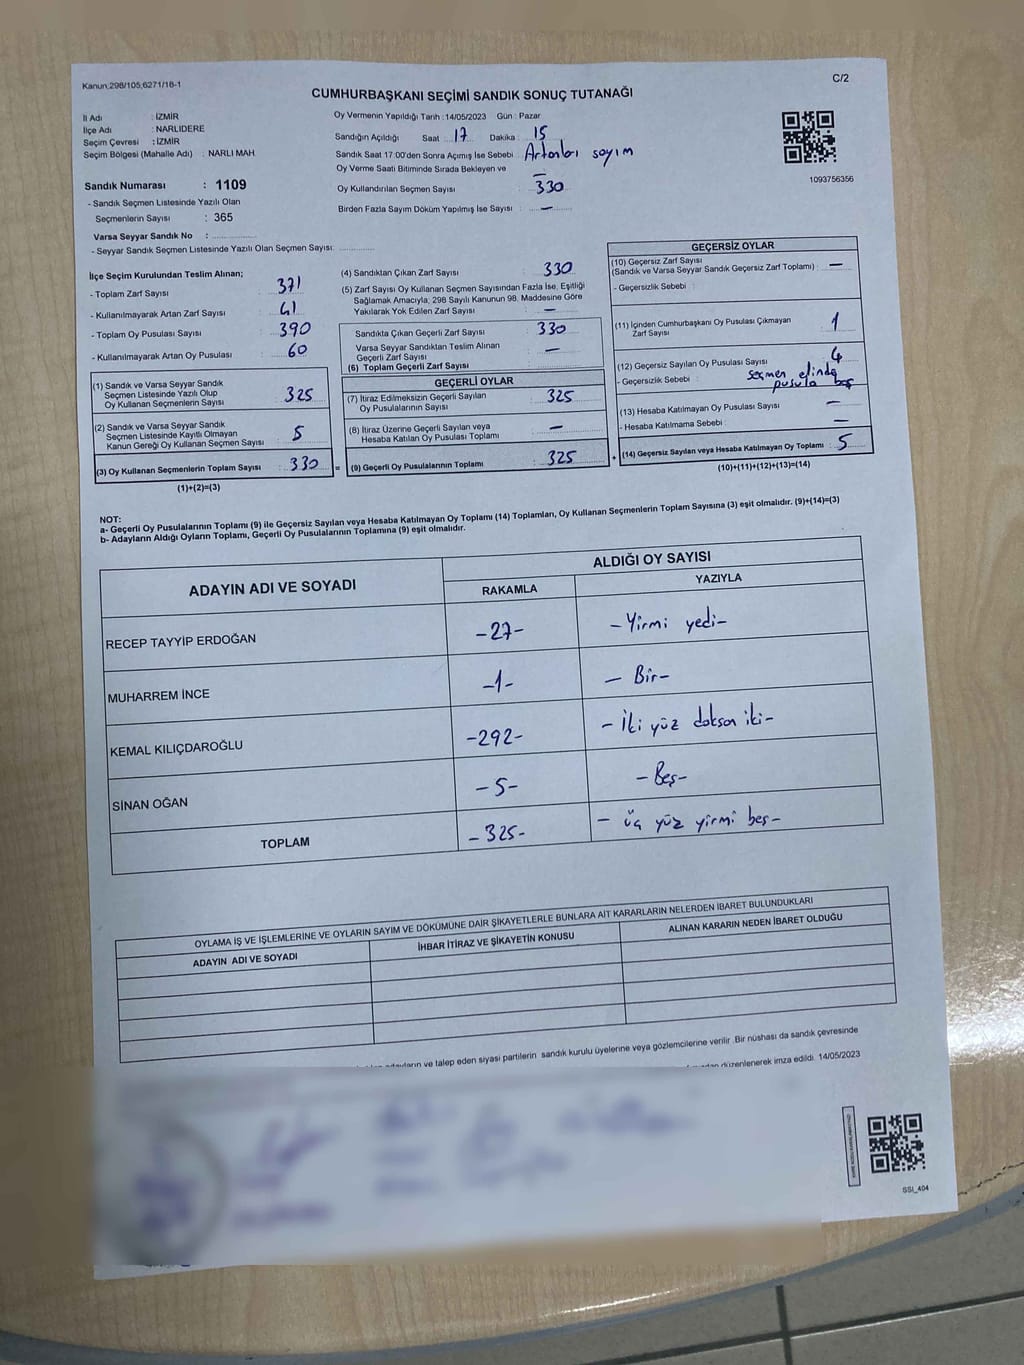 Kanun:298/105;6271/18-1
C/2
CUMHURBAŞKANI SEÇİMİ SANDIK SONUÇ TUTANAĞI
İl Adı : İZMİR
İlçe Adı : NARLIDERE
Seçim Çevresi : İZMİR
Seçim Bölgesi (Mahalle Adı) : NARLI MAH.
Sandık Numarası : 1109
- Sandık Seçmen Listesinde Yazılı Olan
Seçmenlerin Sayısı : 365
Varsa Seyyar Sandık No :
- Seyyar Sandık Seçmen Listesinde Yazılı Olan Seçmen Sayısı:
Oy Vermenin Yapıldığı Tarih : 14/05/2023 Gün : Pazar
Sandığın Açıldığı Saat : 17 Dakika : 15
Sandık Saat 17:00'den Sonra Açımış İse Sebebi : sayım
Oy Verme Saati Bitiminde Sırada Bekleyen ve —
Oy Kullandırılan Seçmen Sayısı : 330
Birden Fazla Sayım Döküm Yapılmış İse Sayısı : —
1093756356
İlçe Seçim Kurulundan Teslim Alınan;
- Toplam Zarf Sayısı : 371
- Kullanılmayarak Artan Zarf Sayısı : 41
- Toplam Oy Pusulası Sayısı : 390
- Kullanılmayarak Artan Oy Pusulası : 60
(1) Sandık ve Varsa Seyyar Sandık
Seçmen Listesinde Yazılı Olup
Oy Kullanan Seçmenlerin Sayısı : 325
(2) Sandık ve Varsa Seyyar Sandık
Seçmen Listesinde Kayıtlı Olmayan
Kanun Gereği Oy Kullanan Seçmen Sayısı : 5
(3) Oy Kullanan Seçmenlerin Toplam Sayısı : 330
(1)+(2)=(3)
(4) Sandıktan Çıkan Zarf Sayısı : 330
(5) Zarf Sayısı Oy Kullanan Seçmen Sayısından Fazla İse, Eşitliği
Sağlamak Amacıyla, 298 Sayılı Kanunun 98. Maddesine Göre
Yakılarak Yok Edilen Zarf Sayısı : —
Sandıkta Çıkan Geçerli Zarf Sayısı : 330
Varsa Seyyar Sandıktan Teslim Alınan
Geçerli Zarf Sayısı : —
(6) Toplam Geçerli Zarf Sayısı
GEÇERLİ OYLAR
(7) İtiraz Edilmeksizin Geçerli Sayılan
Oy Pusulalarının Sayısı : 325
(8) İtiraz Üzerine Geçerli Sayılan veya
Hesaba Katılan Oy Pusulası Toplamı : —
= (9) Geçerli Oy Pusulalarının Toplamı : 325
GEÇERSİZ OYLAR
(10) Geçersiz Zarf Sayısı
(Sandık ve Varsa Seyyar Sandık Geçersiz Zarf Toplamı) : —
- Geçersizlik Sebebi :
(11) İçinden Cumhurbaşkanı Oy Pusulası Çıkmayan
Zarf Sayısı : 1
(12) Geçersiz Sayılan Oy Pusulası Sayısı : 4
- Geçersizlik Sebebi : seçmen elinde
pusula boş
(13) Hesaba Katılmayan Oy Pusulası Sayısı : —
- Hesaba Katılmama Sebebi : —
+ (14) Geçersiz Sayılan veya Hesaba Katılmayan Oy Toplamı : 5
(10)+(11)+(12)+(13)=(14)
NOT:
a- Geçerli Oy Pusulalarının Toplamı (9) ile Geçersiz Sayılan veya Hesaba Katılmayan Oy Toplamı (14) Toplamları, Oy Kullanan Seçmenlerin Toplam Sayısına (3) eşit olmalıdır. (9)+(14)=(3)
b- Adayların Aldığı Oyların Toplamı, Geçerli Oy Pusulalarının Toplamına (9) eşit olmalıdır.
ADAYIN ADI VE SOYADI
ALDIĞI OY SAYISI
RAKAMLA YAZIYLA
RECEP TAYYİP ERDOĞAN -27- -Yirmi yedi-
MUHARREM İNCE -1- - Bir-
KEMAL KILIÇDAROĞLU -292- - İki yüz doksan iki-
SİNAN OĞAN -5- -Beş-
TOPLAM -325- - üç yüz yirmi beş-
OYLAMA İŞ VE İŞLEMLERİNE VE OYLARIN SAYIM VE DÖKÜMÜNE DAİR ŞİKAYETLERLE BUNLARA AİT KARARLARIN NELERDEN İBARET BULUNDUKLARI
ADAYIN ADI VE SOYADI İHBAR İTİRAZ VE ŞİKAYETİN KONUSU ALINAN KARARIN NEDEN İBARET OLDUĞU
ve talep eden siyasi partilerin sandık kurulu üyelerine veya gözlemcilerine verilir. Bir nüshası da sandık çevresinde
düzenlenerek imza edildi. 14/05/2023
SSI_404